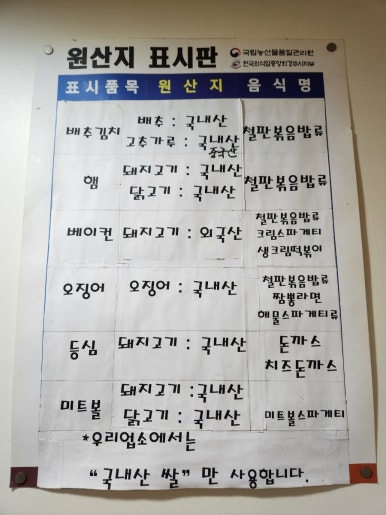 원산지 표시판
국립농산물품질관리원
한국외식업중앙회경주시지부
표시품목 원산지 음식명
배추김치
배추 : 국내산
고추가루 : 국내산
중국산
철판볶음밥류
햄
돼지고기 : 국내산
닭고기 : 국내산
철판볶음밥류
베이컨
돼지고기 : 외국산
철판볶음밥류
크림스파게티
생크림떡볶이
오징어
오징어 : 국내산
철판볶음밥류
짬뽕라면
해물스파게티류
등심
돼지고기 : 국내산
돈까스
치즈돈까스
미트볼
돼지고기 :국내산
닭고기 : 국내산
미트볼스파게티
*우리업소에서는
"국내산 쌀" 만 사용합니다.